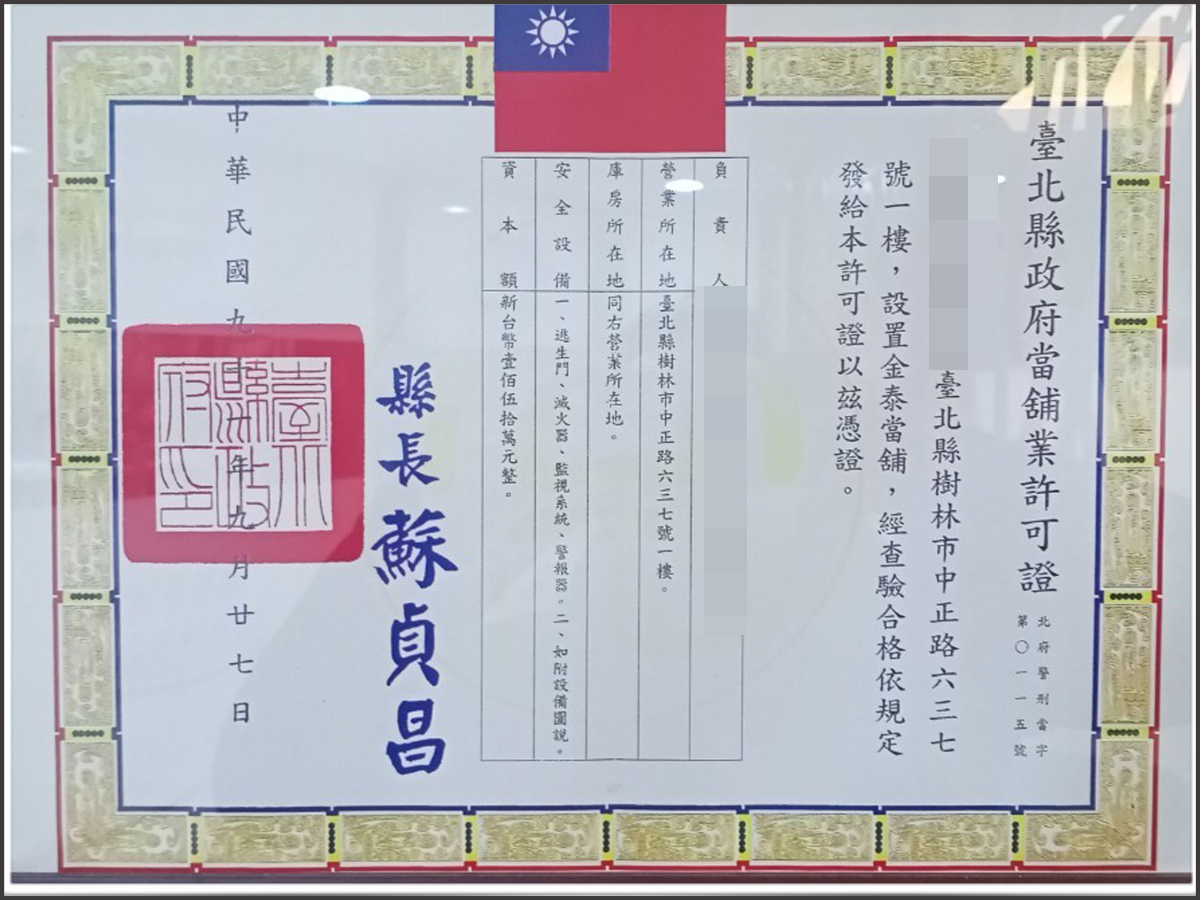 臺北縣政府當舖業許可證
北府警刑當字
第〇一一五號
臺北縣樹林市中正路六三七
號一樓，設置金泰當舖，經查驗合格依規定
發給本許可證以兹憑證。
負責人
營業所在地 臺北縣樹林市中正路六三七號一樓。
庫房所在地 同右營業所在地。
安全設備 一、逃生門、滅火器、監視系統、警報器。二、如附設備圖說。
資本額 新台幣壹佰伍拾萬元整。
縣長 蘇貞昌
中華民國九十年九月廿七日
臺北縣政府印